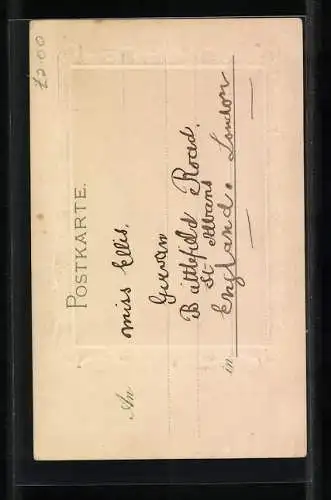 £2.00
POSTKARTE.
An
miss Ellis.
Girvan
Battlefield Road.
St Albans
in England. London